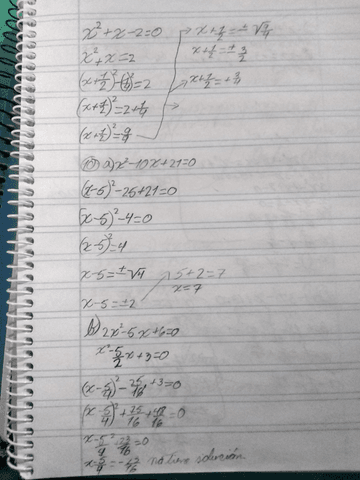 x²+x-2=0
x²+x=2
(x+1/2)²-(1/2)²=2
(x+1/2)²=2+1/4
(x+1/2)²=9/4
x+1/2=±√9/4
x+1/2=±3/2
x+1/2=+3/4
10) a) x²-10x+21=0
(x-5)²-25+21=0
(x-5)²-4=0
(x-5)²=4
x-5=±√4
x-5=±2
5+2=7
x=7
b) 2x²-5x+6=0
x²-5/2x+3=0
(x-5/4)²-25/16+3=0
(x-5/4)²+25/16+48/16=0
=0
no tiene solución